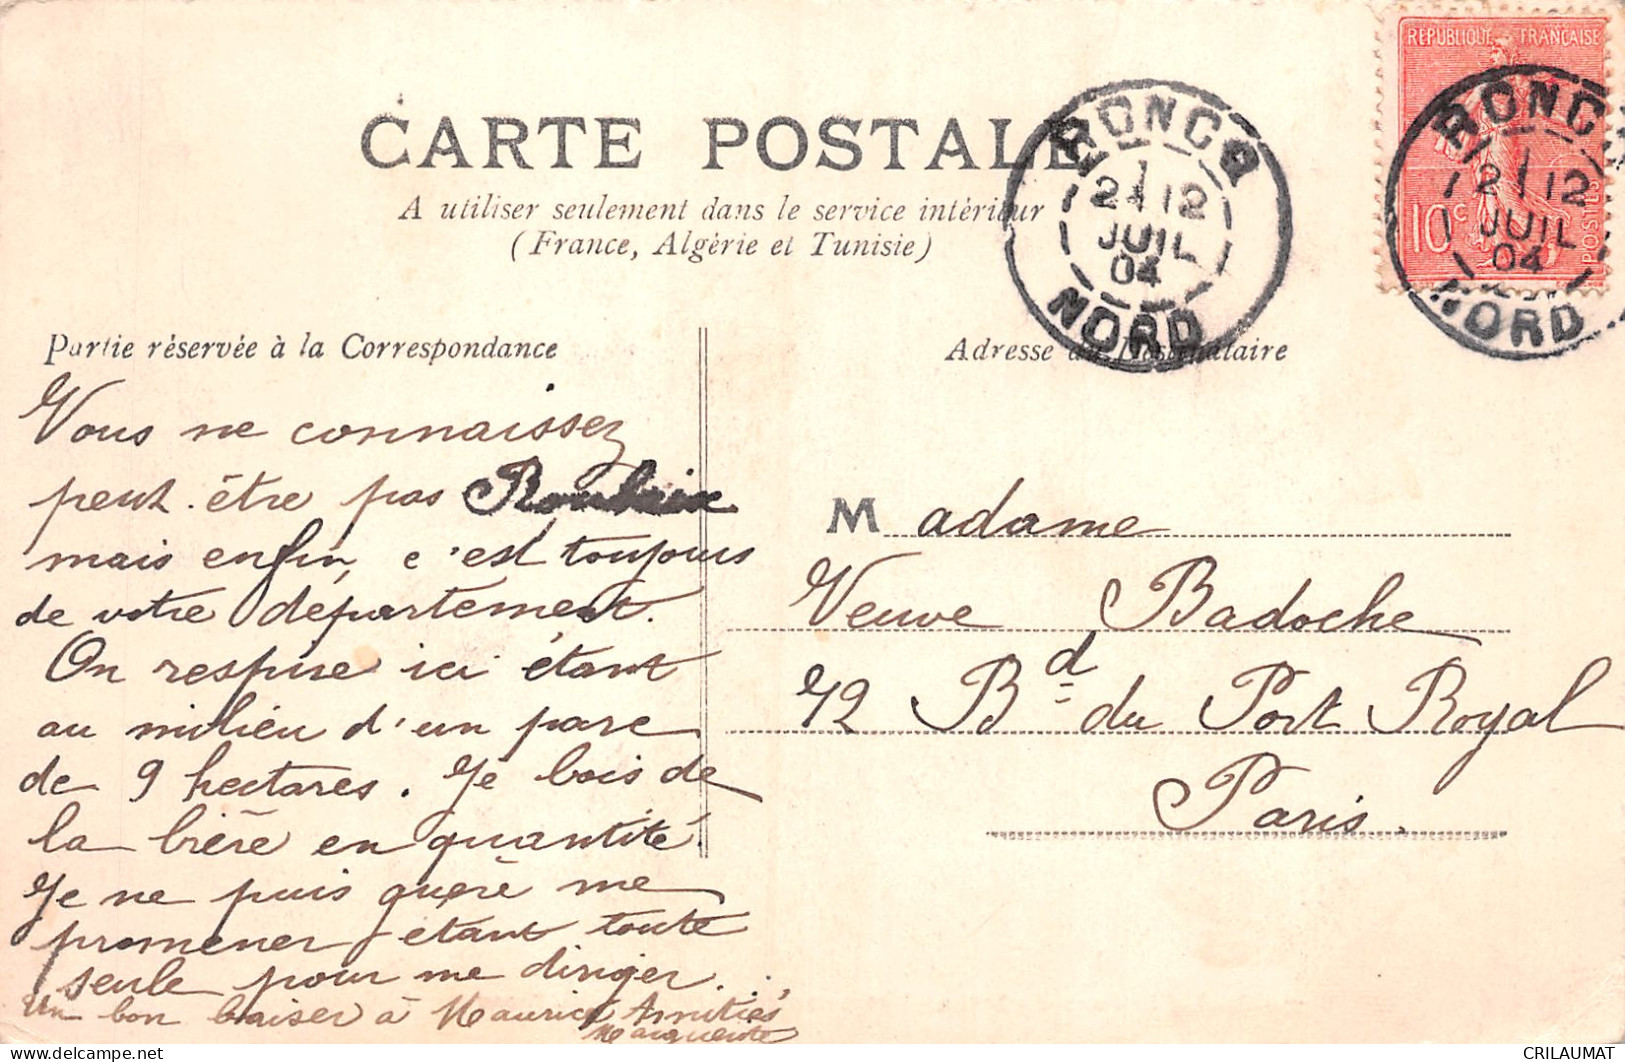 CARTE POSTALE
A utiliser seulement dans le service intérieur
(France, Algérie et Tunisie)
RONCQ
2 12
JUIL
04
NORD
REPUBLIQUE FRANÇAISE
10c
POSTES
RONCQ
2 12
JUIL
04
NORD
Partie réservée à la Correspondance
Adresse du Destinataire
Vous ne connaissez
peut-être pas Roubaix
mais enfin, c'est toujours
de votre département.
On respire ici étant
au milieu d'un parc
de 9 hectares. Je bois de
la bière en quantité.
Je ne puis guère me
promener étant toute
seule pour me diriger.
Un bon baiser à Maurice Amitiés
Marguerite
Madame
Veuve Badoche
42 Bd du Port Royal
Paris.
delcampe.net
CRILAUMAT